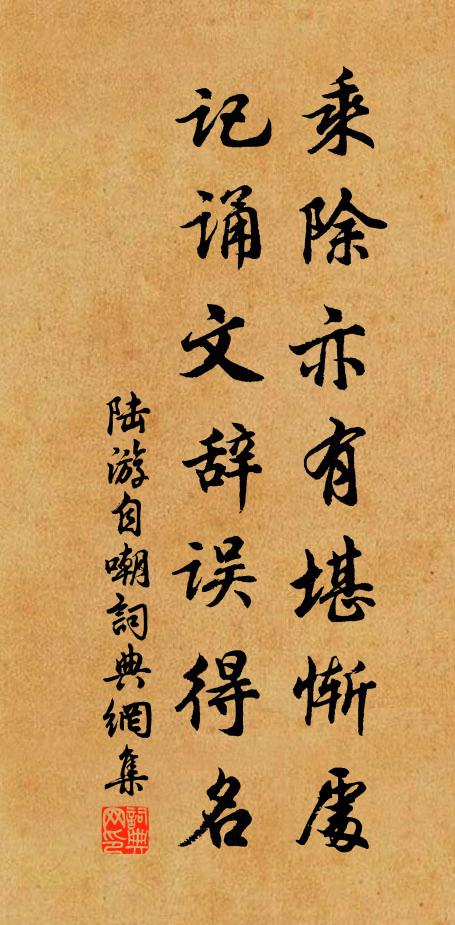 乘除亦有堪惭處
记诵文辞误得名
陆游自嘲詞典網集
詞典网印